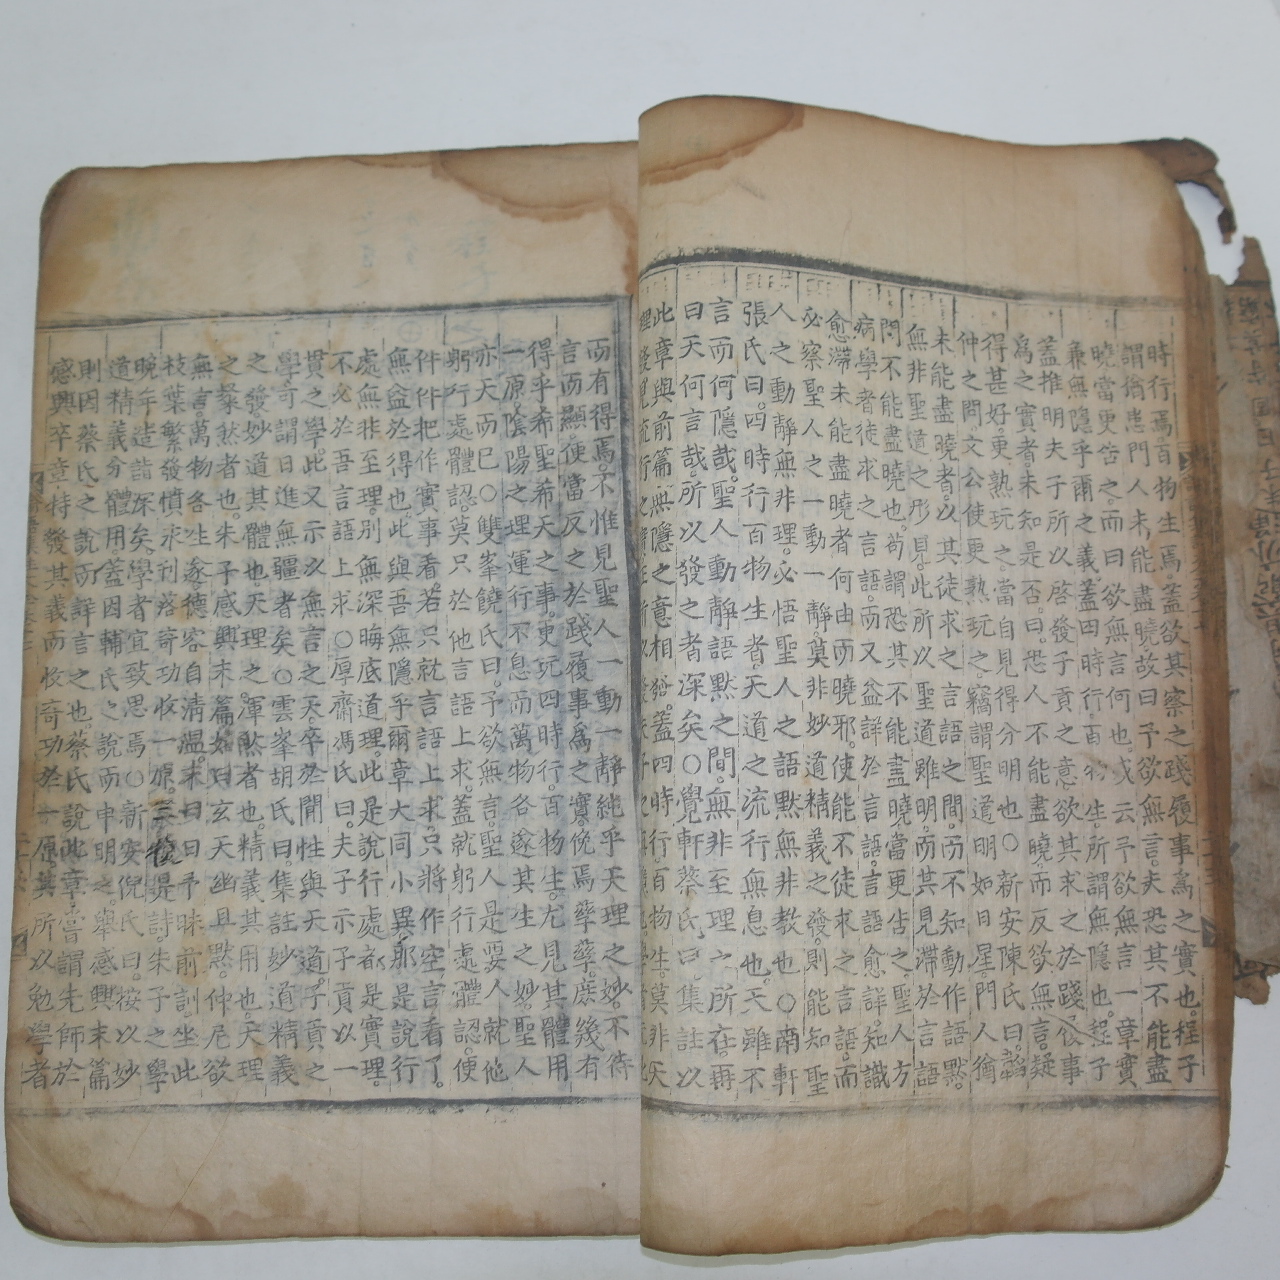 時行焉百物生焉蓋欲其察之踐履事爲之實也程子
謂猶患門人未能盡曉故曰予欲無言夫恐其不能盡
曉當更告之而曰欲無言何也或云予欲無言一章實
兼無隱乎爾之義蓋四時行百物生所謂無隱也程子
蓋推明夫子所以啓發子貢之意欲其求之於踐履事
爲之實者未知是否曰恐人不能盡曉而反欲無言疑
得甚好更熟玩之當自見得分明也○新安陳氏曰
仲之問文公使更熟玩之竊謂聖道明如日星門人猶
未能盡曉者以其徒求之言語之間而不知動作語默
無非聖道之形見此所以聖道雖明而其見滯於言語
問不能盡曉也苟謂恐其不能盡曉當更告之聖人方
病學者徒求之言語而又益詳於言語言語愈詳知識
愈滯未能盡曉者何由而曉邪使能不徒求之言語而
必察聖人之一動一靜莫非妙道精義之發則能知聖
人之動靜無非理必悟聖人之語默無非教也○南軒
張氏曰四時行百物生者天道之流行無息也天雖不
言而何隱哉聖人動靜語默之間無非至理之所在再
曰天何言哉所以發之者深矣○覺軒蔡氏曰集註以
此章與前篇無隱之意相發蓋四時行百物生莫非天
而有得焉不惟見聖人一動一靜純乎天理之妙不待
言而顯便當反之於踐履事爲之實俛焉孳孳庶幾有
得乎希聖希天之事更玩四時行百物生尤見其體用
一原陰陽之理運行不息而萬物各遂其生之妙聖人
亦天而已○雙峯饒氏曰予欲無言聖人是要人就他
躬行處體認莫只於他言語上求蓋就躬行處體認便
件件把作實事看若只就言語上求只將作空言看了
無益於得也此與吾無隱乎爾章大同小異那是說行
處無非至理別無深晦底道理此是說行處都是實理
不必於吾言語上求○厚齋馮氏曰夫子示子貢以一
貫之學此又示以無言之天卒於聞性與天道子貢之
學可謂日進無疆者矣○雲峯胡氏曰集註妙道精義
之發妙道其體也天理之渾然者也精義其用也天理
之粲然者也朱子感興末篇始曰玄天幽且默仲尼欲
無言萬物各生遂德容自清溫末曰曰予昧前訓坐此
枝葉繁發憤永刊落奇功收一原三復是詩朱子之學
晚年造詣深矣學者宜致思焉○新安倪氏曰按以妙
道精義分體用蓋因輔氏之說而申明之舉感興末篇
則因蔡氏之說而詳言之也蔡氏說此章嘗謂先師於
感興卒章特發其義而收奇功於一原其所以勉學者